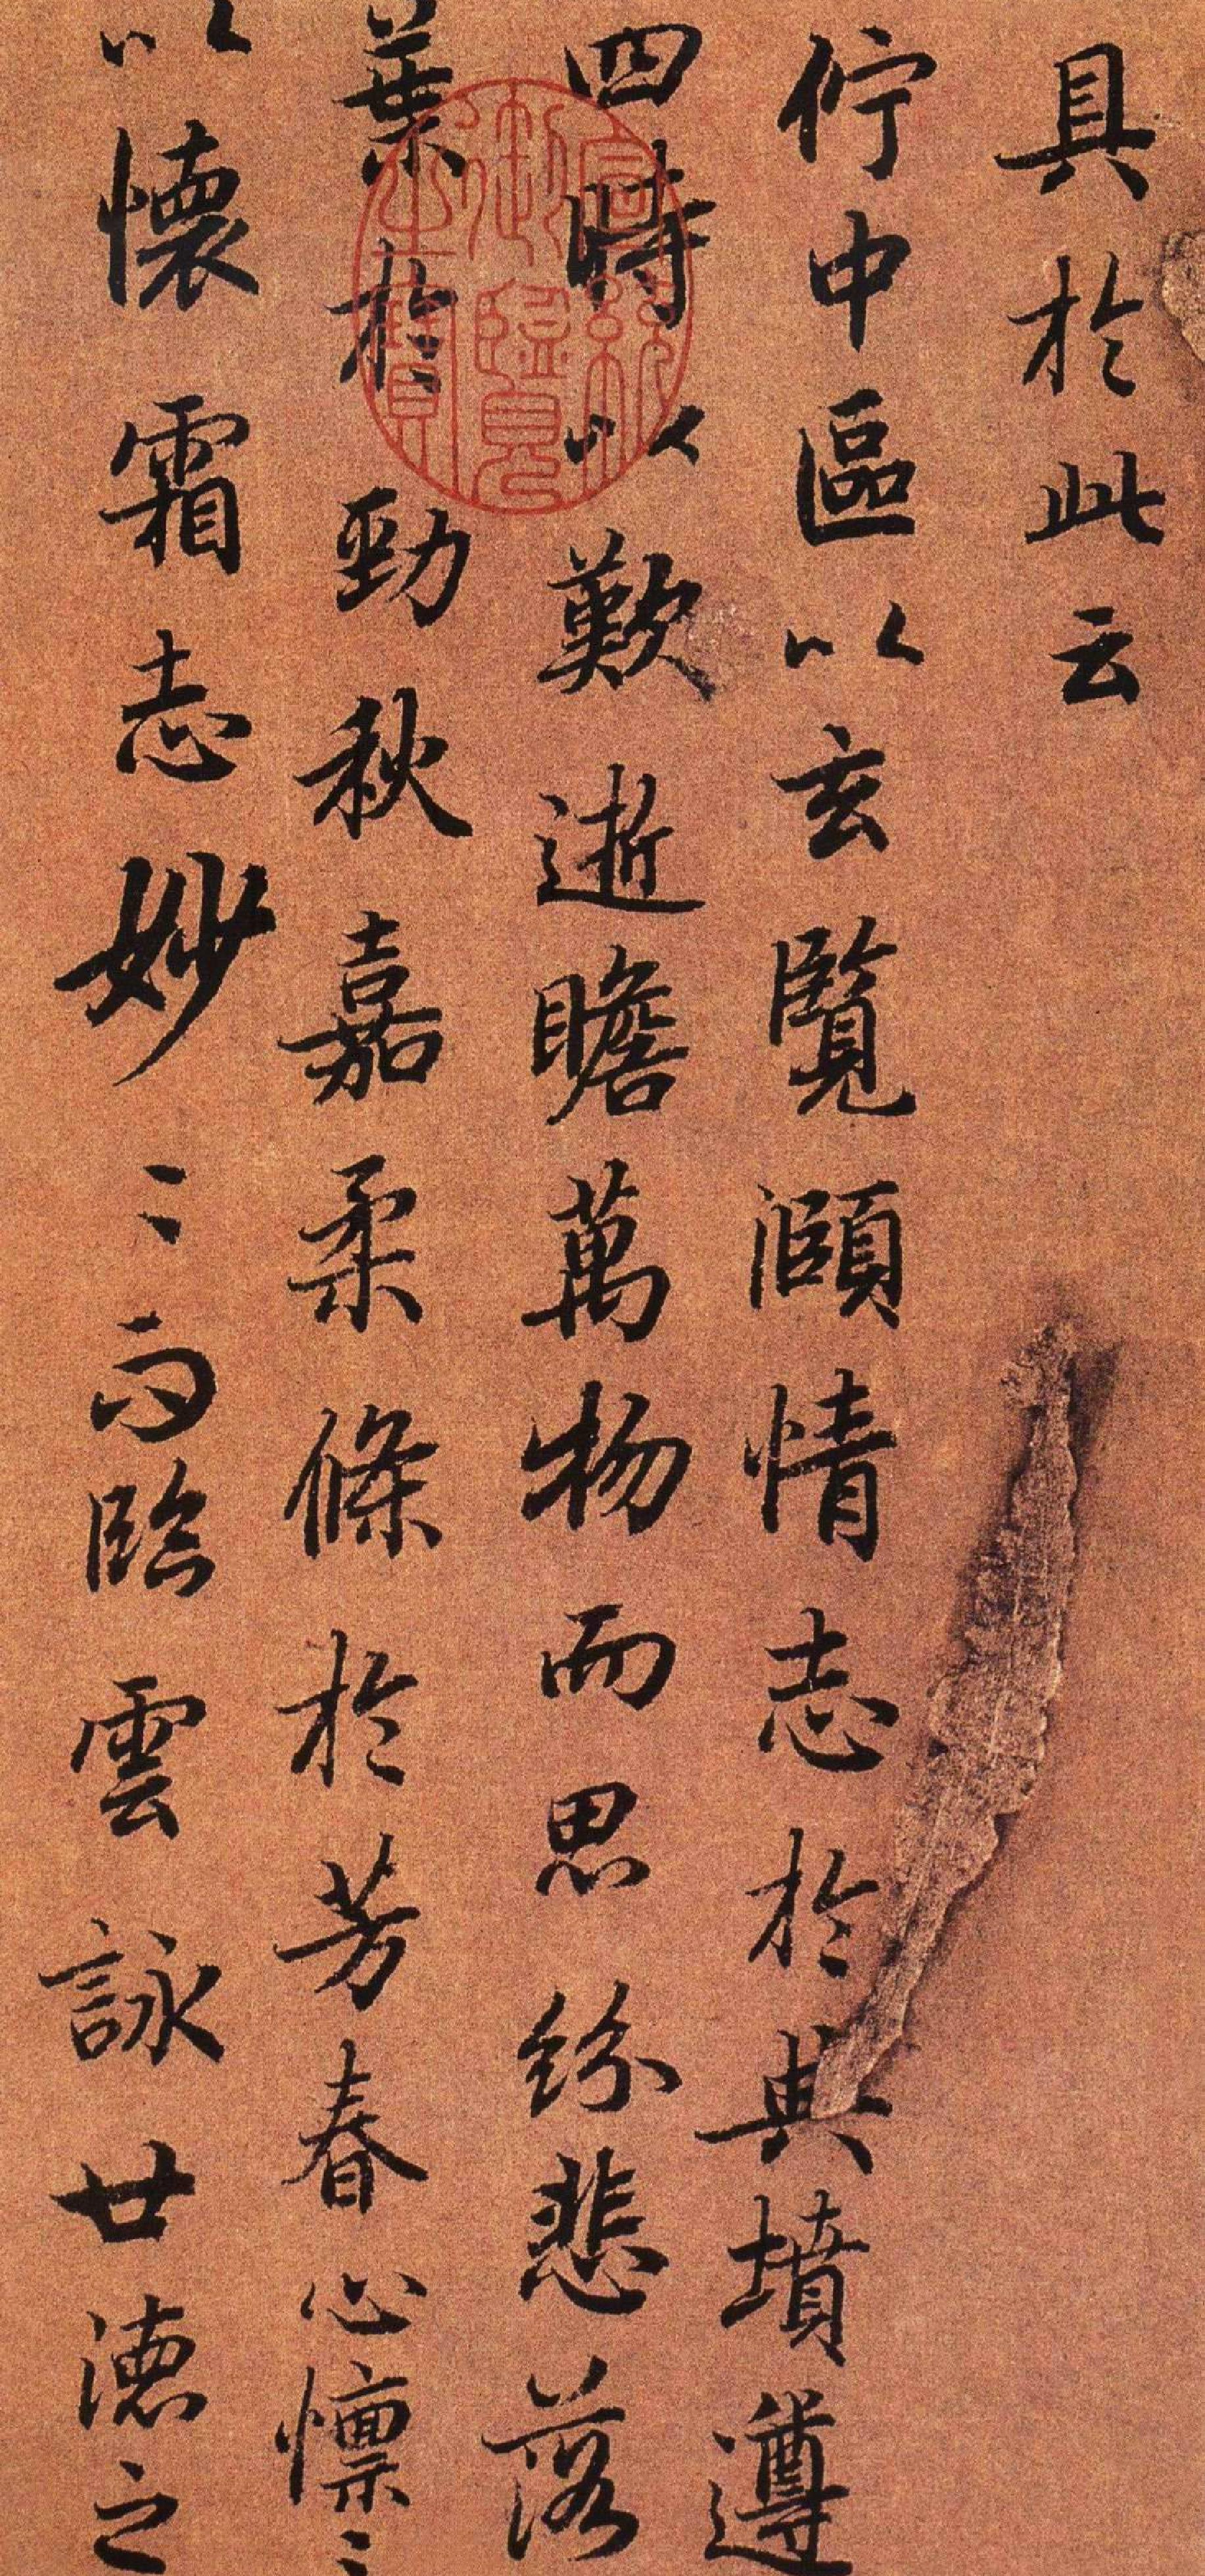 具於此云
佇中區以玄覽頤情志於典墳遵
四時以歎逝瞻萬物而思紛悲落
葉於勁秋嘉柔條於芳春心懍〻
以懷霜志妙〻而臨雲詠世德之
宣統
御覽
之寶